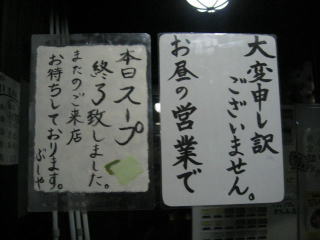 大変申し訳
ございません。
お昼の営業で
本日スープ
終了致しました。
またのご来店
お待ちしております。
ぶしや